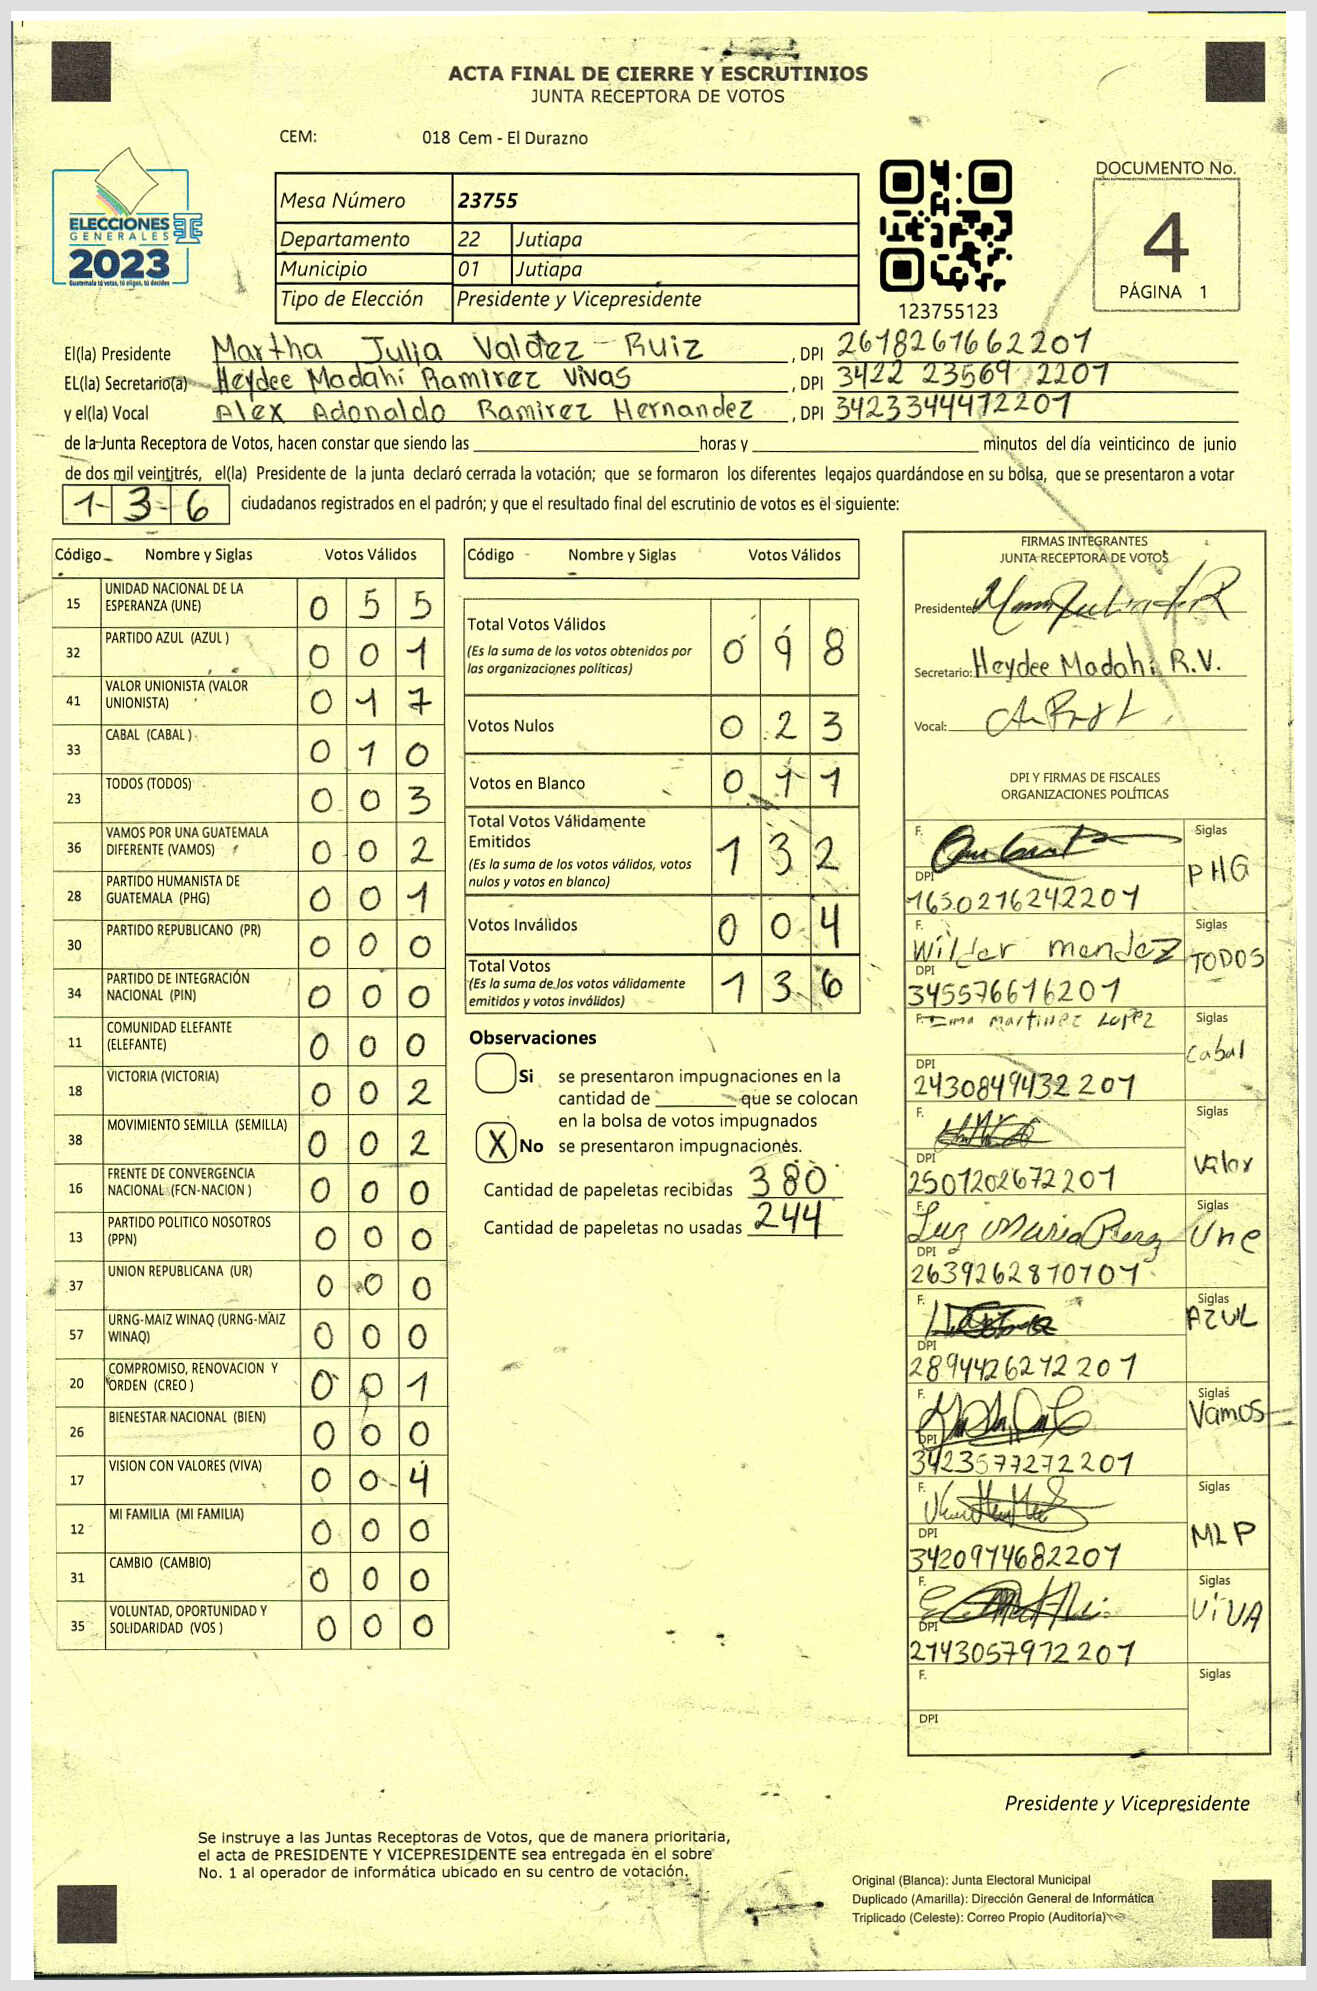 ACTA FINAL DE CIERRE Y ESCRUTINIOS
JUNTA RECEPTORA DE VOTOS
CEM: 018 Cem - El Durazno
ELECCIONES
GENERALES
2023
Guatemala tú votas, tú eliges, tú decides
Mesa Número 23755
Departamento 22 Jutiapa
Municipio 01 Jutiapa
Tipo de Elección Presidente y Vicepresidente
123755123
DOCUMENTO No.
4
PÁGINA 1
El(la) Presidente Martha Julia Valdez Ruiz , DPI 2618261662201
EL(la) Secretario(a) Heydee Madahí Ramirez Vivas , DPI 3422 23569 2201
y el(la) Vocal Alex Adonaldo Ramirez Hernandez , DPI 3423344472201
de la Junta Receptora de Votos, hacen constar que siendo las horas y minutos del día veinticinco de junio
de dos mil veintitrés, el(la) Presidente de la junta declaró cerrada la votación; que se formaron los diferentes legajos quardándose en su bolsa, que se presentaron a votar
1 3 6 ciudadanos registrados en el padrón; y que el resultado final del escrutinio de votos es el siguiente:
Código Nombre y Siglas Votos Válidos
15 UNIDAD NACIONAL DE LA ESPERANZA (UNE) 0 5 5
32 PARTIDO AZUL (AZUL ) 0 0 1
41 VALOR UNIONISTA (VALOR UNIONISTA) 0 1 7
33 CABAL (CABAL ) 0 1 0
23 TODOS (TODOS) 0 0 3
36 VAMOS POR UNA GUATEMALA DIFERENTE (VAMOS) 0 0 2
28 PARTIDO HUMANISTA DE GUATEMALA (PHG) 0 0 1
30 PARTIDO REPUBLICANO (PR) 0 0 0
34 PARTIDO DE INTEGRACIÓN NACIONAL (PIN) 0 0 0
11 COMUNIDAD ELEFANTE (ELEFANTE) 0 0 0
18 VICTORIA (VICTORIA) 0 0 2
38 MOVIMIENTO SEMILLA (SEMILLA) 0 0 2
16 FRENTE DE CONVERGENCIA NACIONAL (FCN-NACION ) 0 0 0
13 PARTIDO POLITICO NOSOTROS (PPN) 0 0 0
37 UNION REPUBLICANA (UR) 0 0 0
57 URNG-MAIZ WINAQ (URNG-MAIZ WINAQ) 0 0 0
20 COMPROMISO, RENOVACION Y ORDEN (CREO ) 0 0 1
26 BIENESTAR NACIONAL (BIEN) 0 0 0
17 VISION CON VALORES (VIVA) 0 0 4
12 MI FAMILIA (MI FAMILIA) 0 0 0
31 CAMBIO (CAMBIO) 0 0 0
35 VOLUNTAD, OPORTUNIDAD Y SOLIDARIDAD (VOS ) 0 0 0
Código Nombre y Siglas Votos Válidos
Total Votos Válidos 0 9 8
(Es la suma de los votos obtenidos por
las organizaciones políticas)
Votos Nulos 0 2 3
Votos en Blanco 0 1 1
Total Votos Válidamente
Emitidos 1 3 2
(Es la suma de los votos válidos, votos
nulos y votos en blanco)
Votos Inválidos 0 0 4
Total Votos 1 3 6
(Es la suma de los votos válidamente
emitidos y votos inválidos)
Observaciones
Si se presentaron impugnaciones en la
cantidad de que se colocan
en la bolsa de votos impugnados
X No se presentaron impugnaciones.
Cantidad de papeletas recibidas 380
Cantidad de papeletas no usadas 244
FIRMAS INTEGRANTES
JUNTA RECEPTORA DE VOTOS
Presidente:
Secretario: Heydee Madahi R.V.
Vocal:
DPI Y FIRMAS DE FISCALES
ORGANIZACIONES POLÍTICAS
F. Siglas PHG
DPI 1650216242201
F. Wilder mendez Siglas TODOS
DPI 345576616201
F. martinez Lopez Siglas Cabal
DPI 2430849432201
F. Siglas Valor
DPI 2501202672201
F. Luz Maria Perez Siglas Une
DPI 2639262870101
F. Siglas AZUL
DPI 2894426272201
F. Siglas Vamos
DPI 3423577272201
F. Siglas MLP
DPI 3420914682201
F. Siglas ViVA
DPI 2743057972201
F. Siglas
DPI
Presidente y Vicepresidente
Se instruye a las Juntas Receptoras de Votos, que de manera prioritaria,
el acta de PRESIDENTE Y VICEPRESIDENTE sea entregada en el sobre
No. 1 al operador de informática ubicado en su centro de votación.
Original (Blanca): Junta Electoral Municipal
Duplicado (Amarilla): Dirección General de Informática
Triplicado (Celeste): Correo Propio (Auditoría)